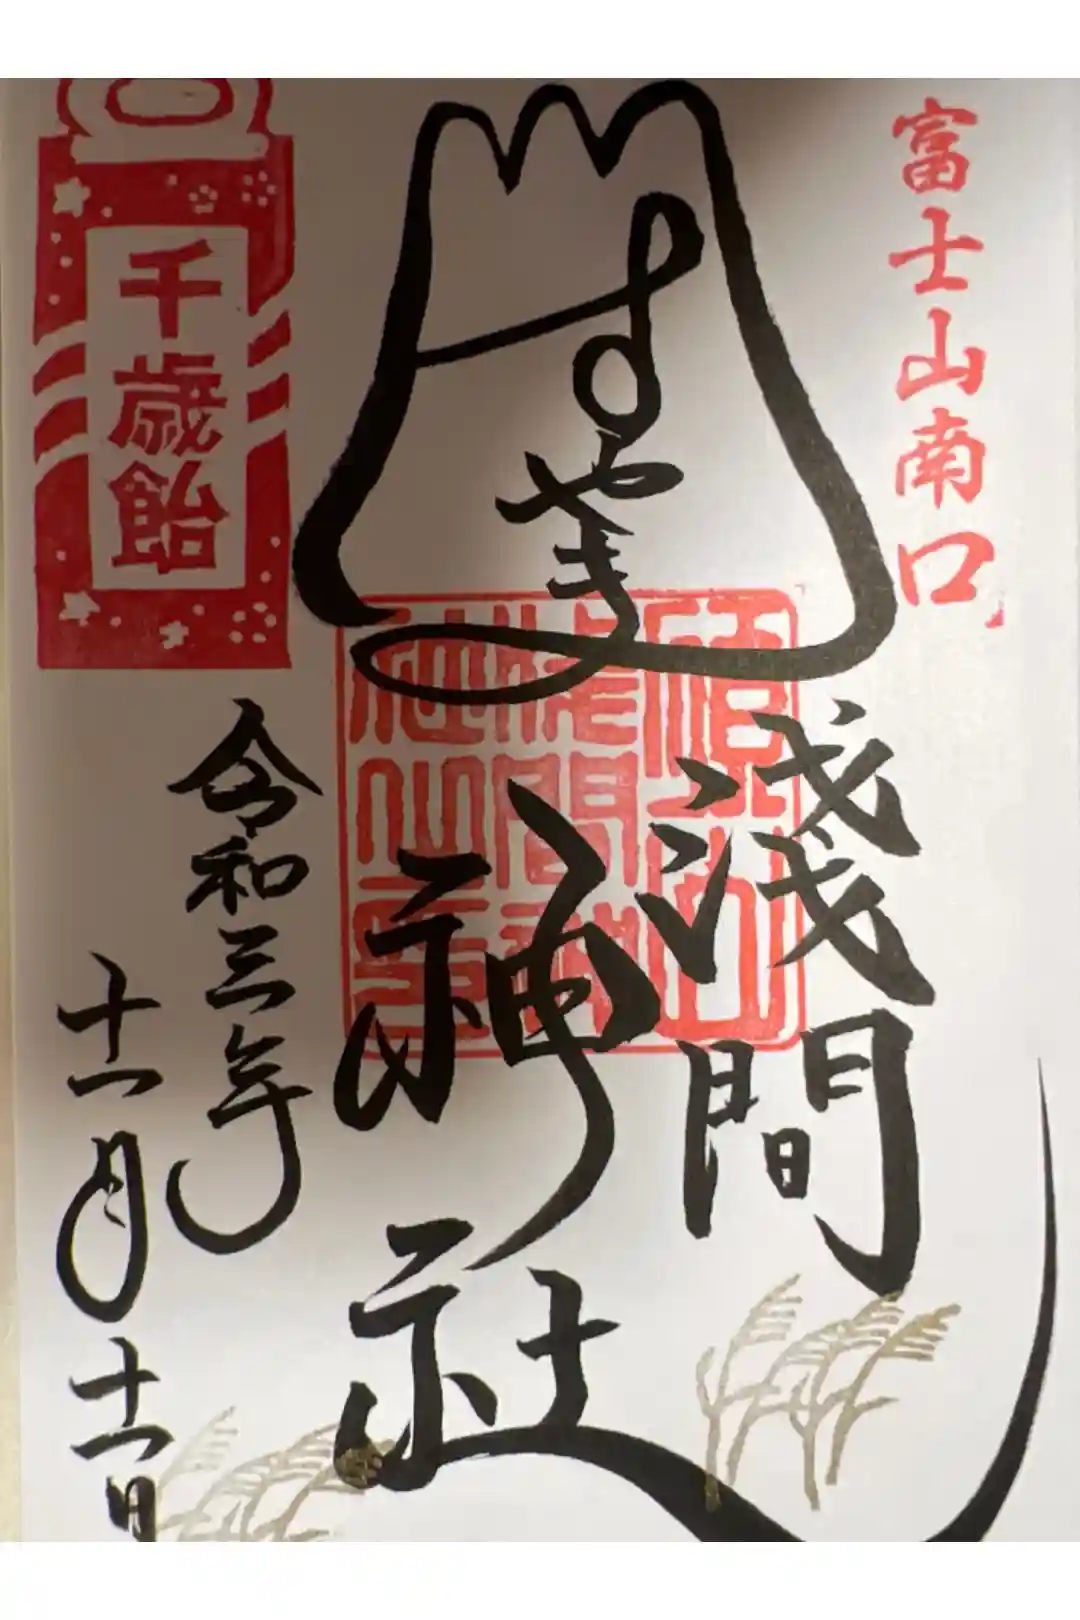 富士山南口
すやま
淺間
神社
令和三年
十一月
十一日
千歳飴